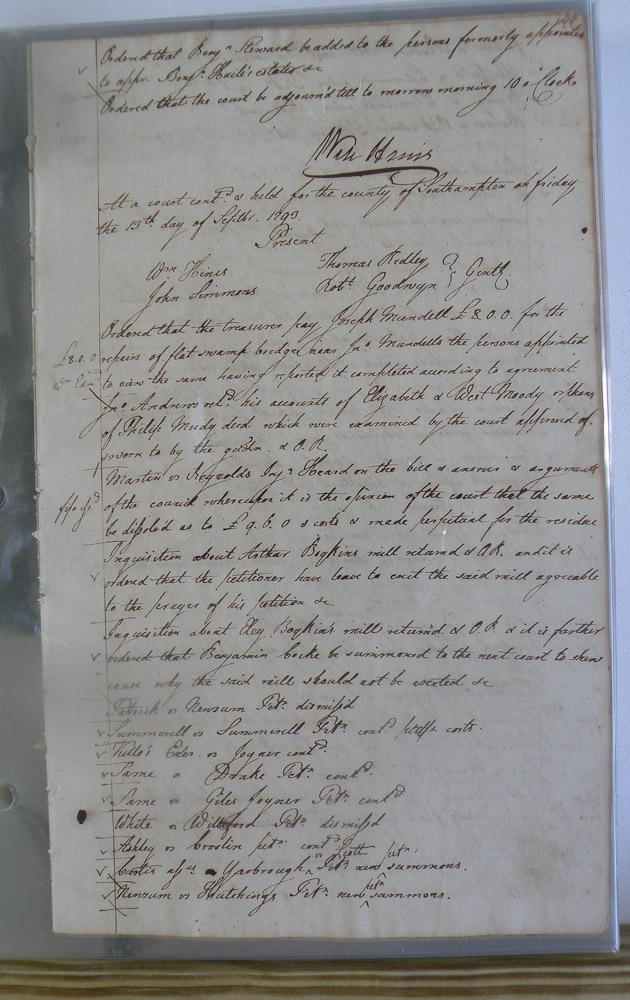 Ordered that Benjn Steward be added to the persons formerly appointed
to appr. Benjn Haile's estate &c
Ordered that the court be adjourn'd till to morrow morning 10 o'Clock
Wm Hines
At a court contd. & held for the county of Southampton on friday
the 13th day of Septbr. 1793.
Present
Wm Hines Thomas Ridley } Gentl.
John Simmons Robt Goodwyn
Ordered that the treasurer pay Joseph Mundell £8.0.0 for the
£8.0.0 repairs of flat swamp bridge near Jno. Mundells the persons appointed
to view the same having reported it completed according to agreement
Jno. Andrews retd. his accounts of Elizabeth & West Moody orphans
of Philip Moody decd. which were examined by the court approved of
sworn to by the gudn. & O.R.
Martin vs Reynolds Inj: Heard on the bill & answer & arguments
of the council whereupon it is the opinion of the court that the same
be dissolvd as to £9.6.0 & costs & made perpetual for the residue
Inquisition about Arthur Boykins mill returnd & O.R. and it is
ordered that the petitioner have leave to erect the said mill agreeable
to the prayer of his petition &c
Inquisition about Eley Boykin's mill return'd & O.R. & it is further
ordered that Benjamin Cocke be summoned to the next court to shew
cause why the said mill should not be erected &c
Patrick vs Newsum Petn. dismissd
Summerell vs Summerell Petn. contd. pltffs. costs.
Kello's Exes. vs Joyner contd.
Same vs Drake Petn. contd.
Same vs Giles Joyner Petn. contd
White vs Williford Petn. dismissd
Ashley vs petn. contd
Curtis assee. vs Yarbrough Petn. new petn. summons.
Newsum vs Hutchings Petn. new petn summons.